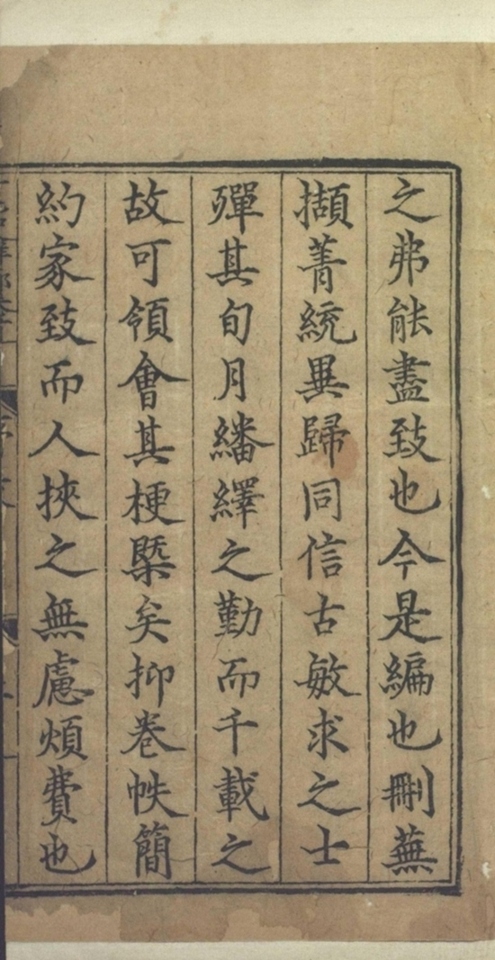 之弗能盡致也今是編也刪蕪
擷菁統異歸同信古敏求之士
殫其旬月繙繹之勤而千載之
故可領會其梗槩矣抑卷帙簡
約家致而人挾之無慮煩費也